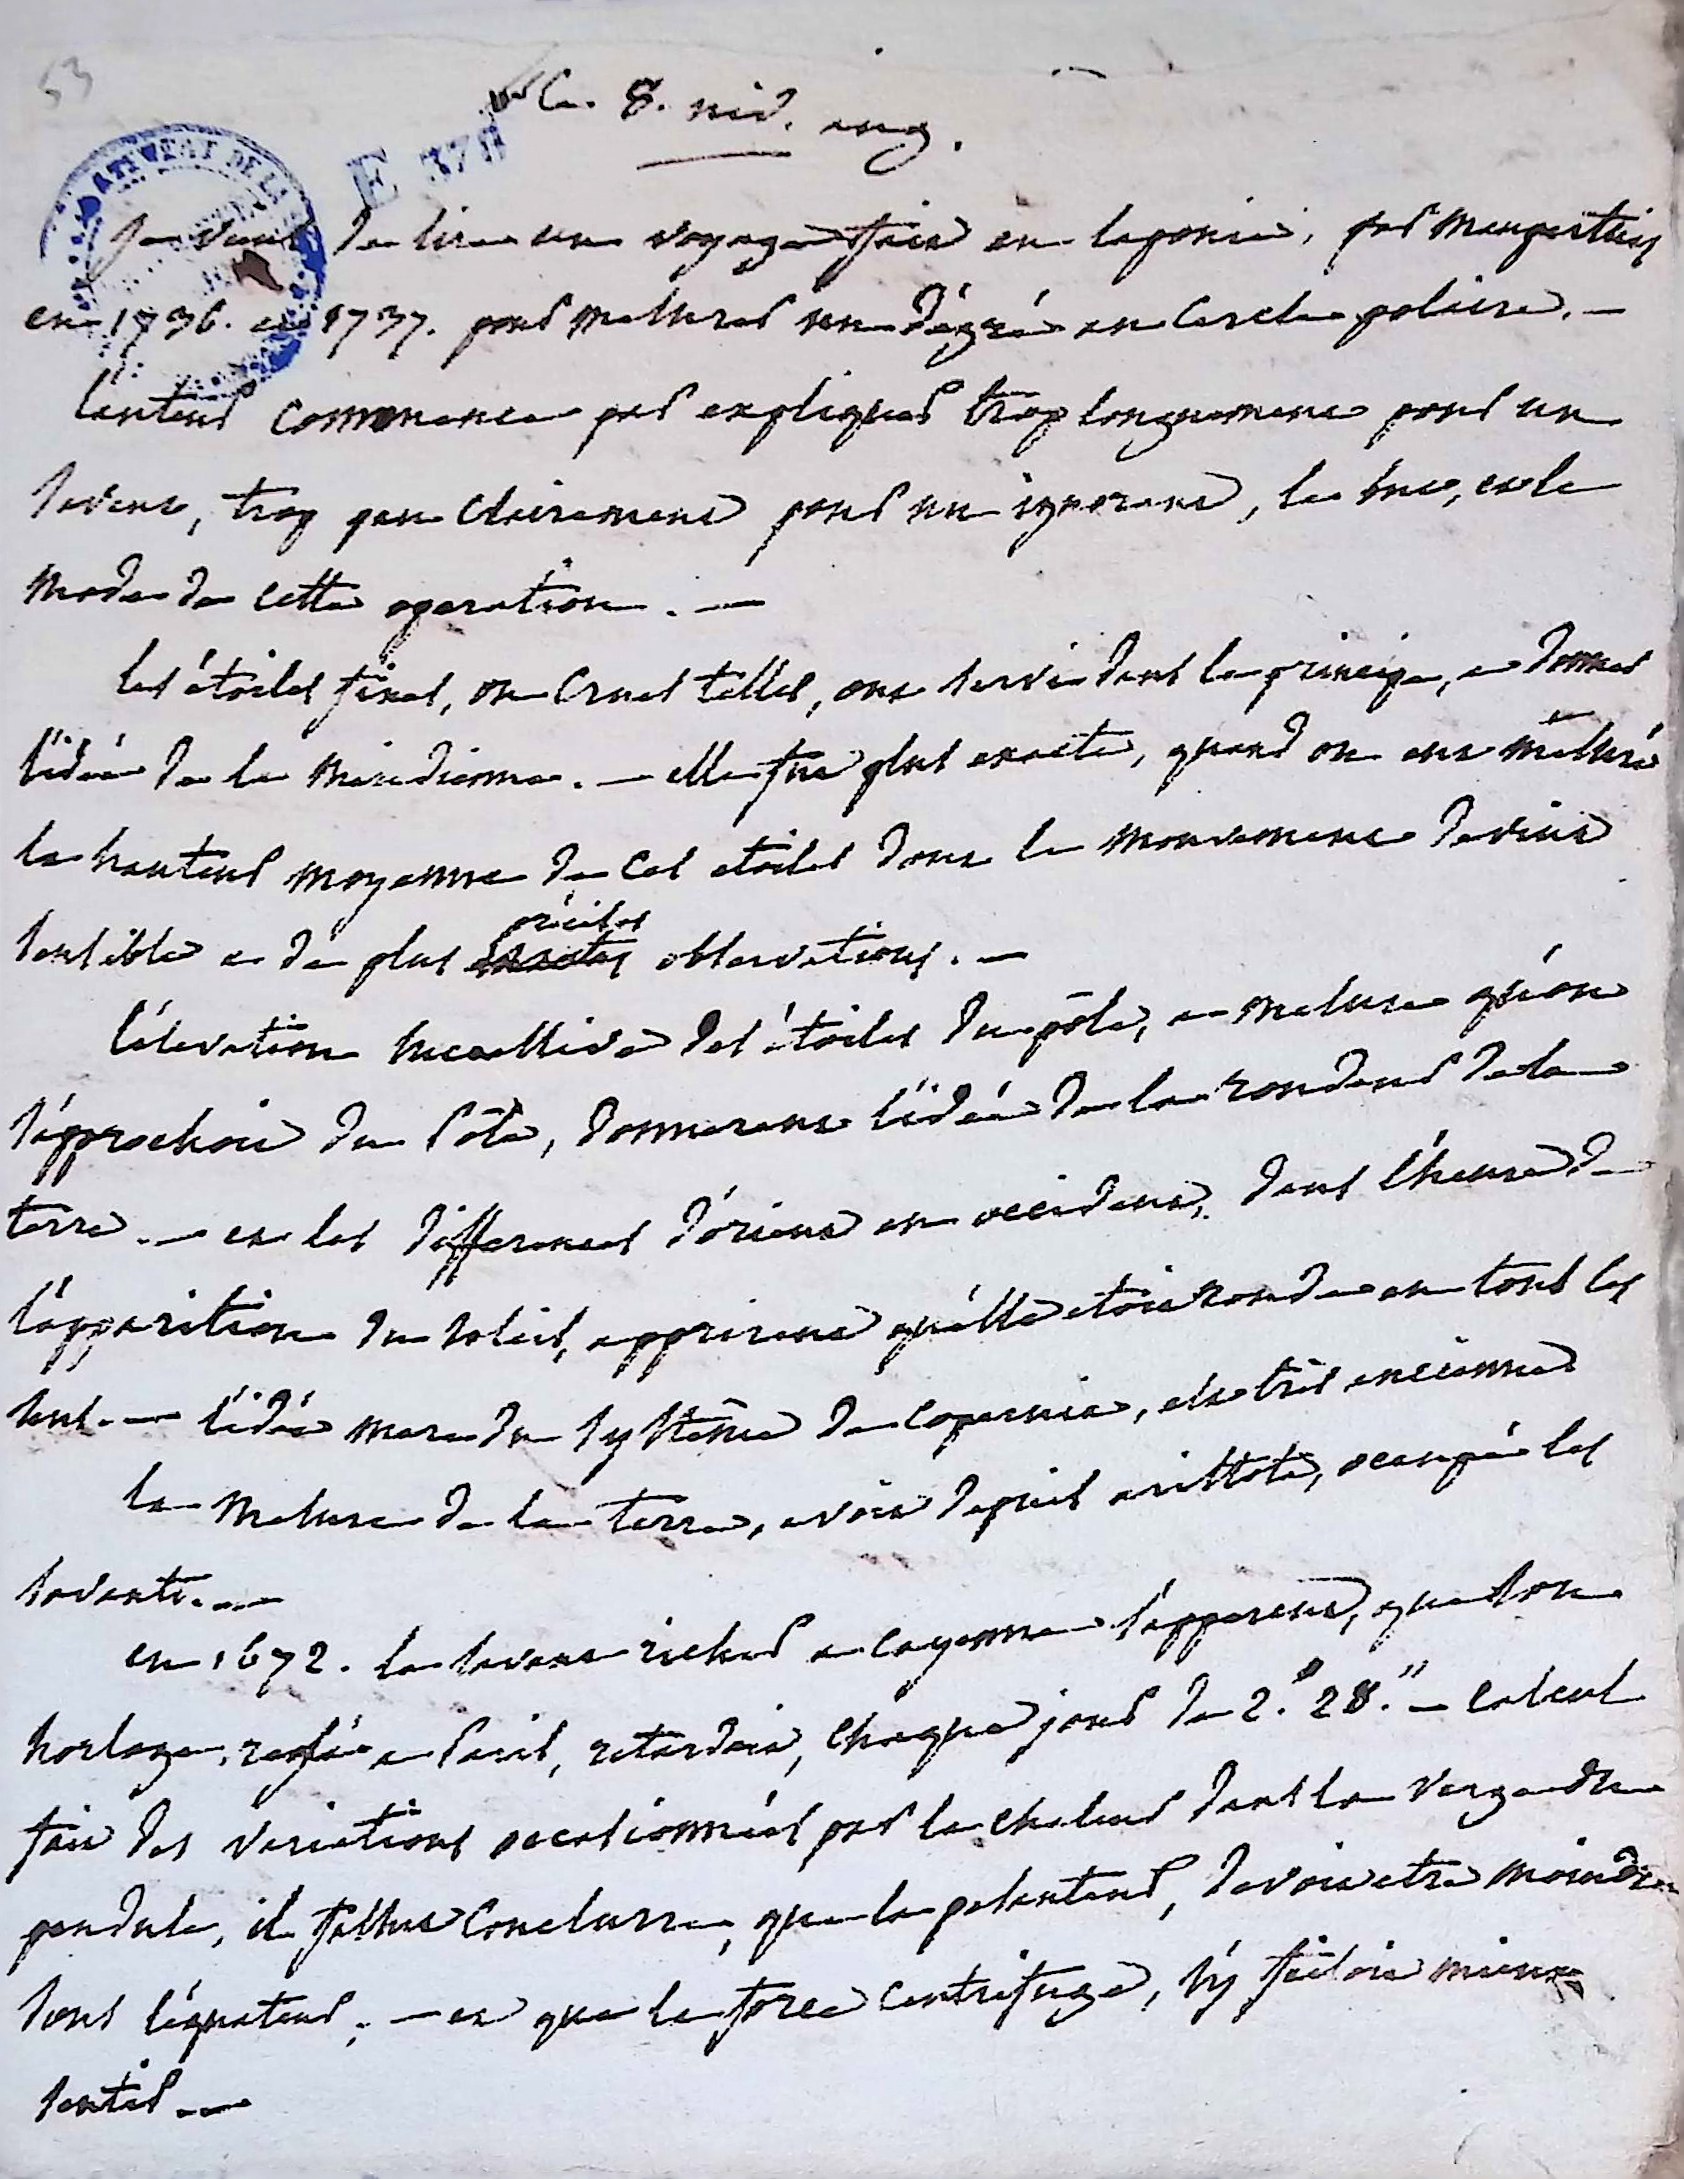 53
Le 8. niv. an 9.
E 378
Je viens de lire un voyage fait en laponie, par Maupertuis
en 1736. et 1737. pour mesurer un dégré au cercle polaire. —
l'auteur commence par expliquer trop longuement pour un
savant, trop peu clairement pour un ignorant, le but, et le
mode de cette operation. —
les étoiles fixes, ou crues telles, ont servi dans le principe, a donner
l'idée de la méridienne. — elle fut plus exacte, quand on eut mesuré
la hauteur moyenne de ces etoiles dont le mouvement devint
sensible a de plus précises observations. —
l'élevation successive des étoiles du pôle, a mesure qu'on
s'approchoit du Pôle, donnerent l'idée de la rondeur de la
terre. — et les differences d'orient en occident, dans l'heure de
l'apparition du soleil, apprirent qu'elle etoit ronde en tous les
sens. — l'idée mere du systême de Copernic, est très ancienne
la mesure de la terre, avoit depuis aristote, occupé les
savants. —
en 1672. le savant richer a cayenne s'apperçut, que son
horloge, reglée a Paris, retardoit, chaque jour de 2.' 28." — calcul
fait des variations occasionnées par la chaleur dans la verge du
pendule, il fallut conclurre, que la pesanteur, devoit etre moindre
sous l'équateur; — et que la force centrifuge, s'y faisoit mieux
sentir. —